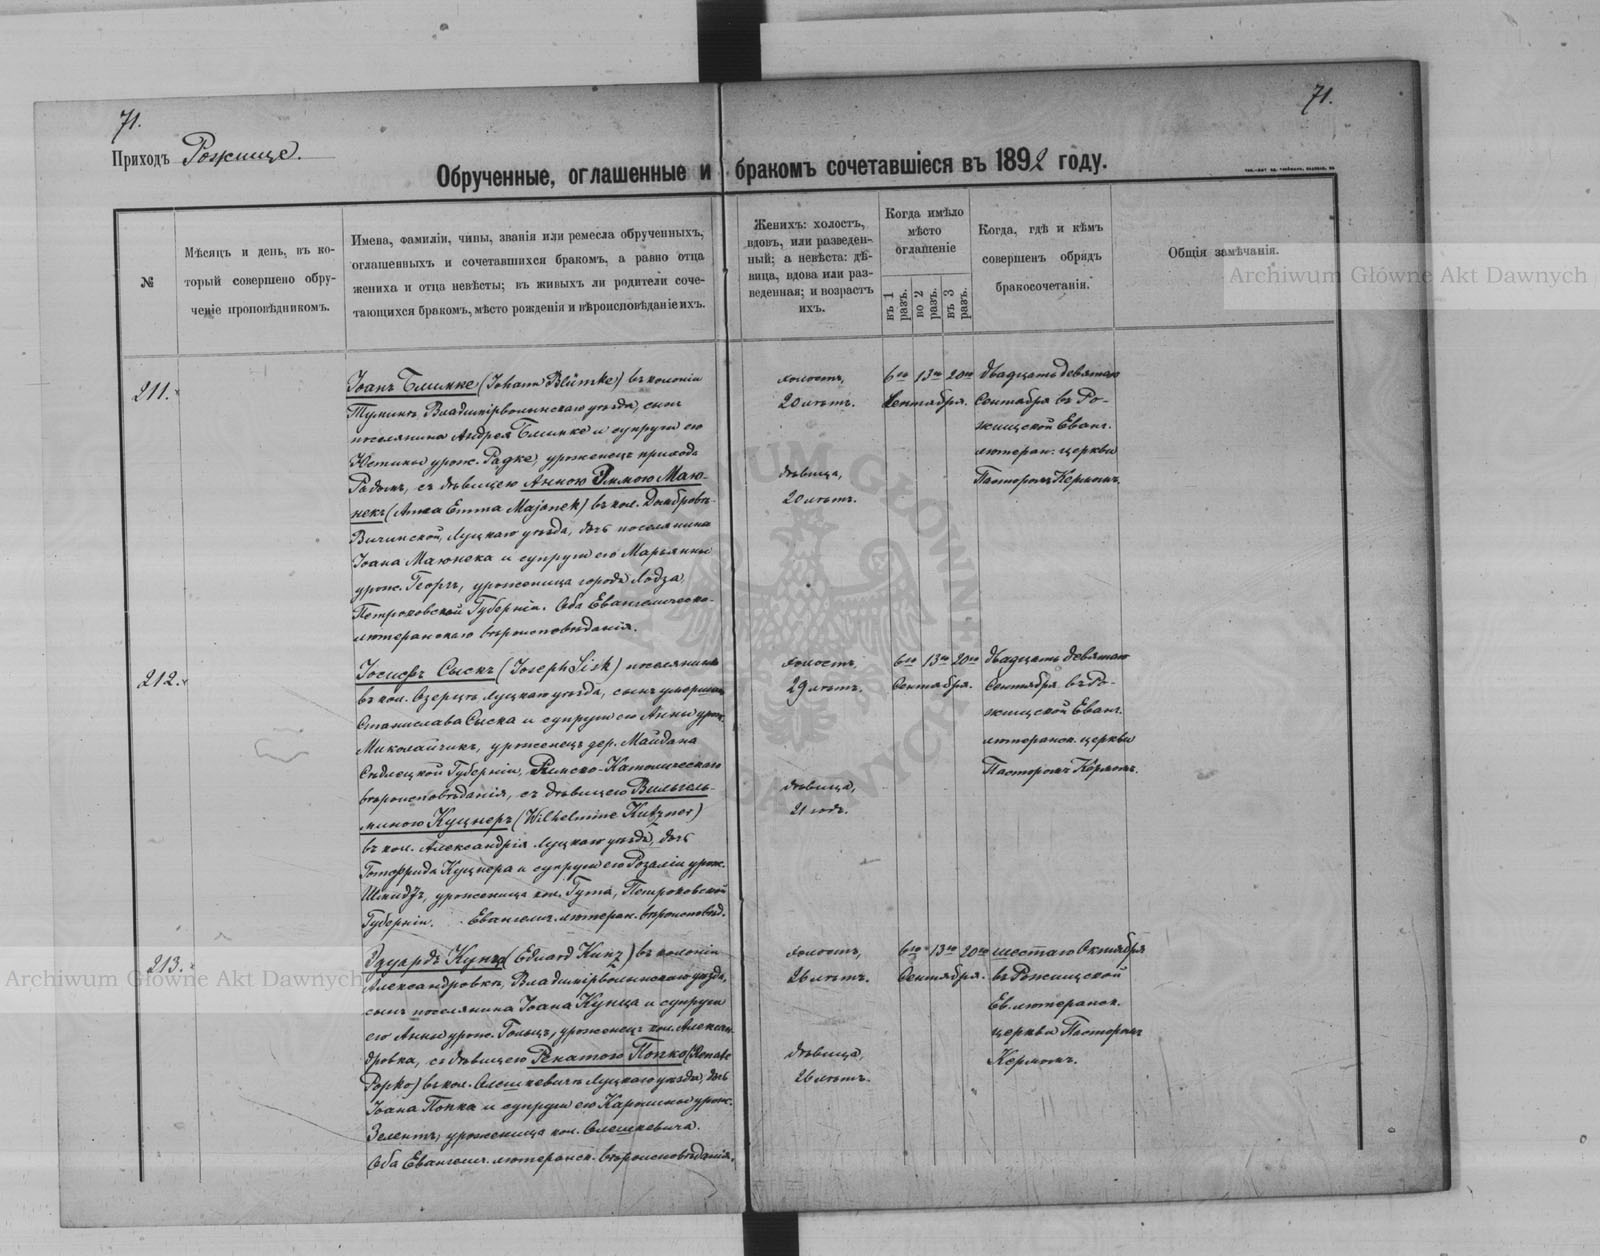 71.
71.
Приходъ Рожище.
Обрученные, оглашенные и бракомъ сочетавшіеся въ 1892 году.
№
Мѣсяцъ и день, въ ко-
торый совершено обру-
ченіе проповѣдникомъ.
Имена, фамиліи, чины, званія или ремесла обрученныхъ,
оглашенныхъ и сочетавшихся бракомъ, а равно отца
жениха и отца невѣсты; въ живыхъ ли родители соче-
тающихся бракомъ, мѣсто рожденія и вѣроисповѣданіе ихъ.
Женихъ: холостъ,
вдовъ, или разведен-
ный; а невѣста: дѣ-
вица, вдова или раз-
веденная; и возрастъ
ихъ.
Когда имѣло
мѣсто
оглашеніе
въ 1 разъ.
во 2 разъ.
въ 3 разъ.
Когда, гдѣ и кѣмъ
совершенъ обрядъ
бракосочетанія.
Общія замѣчанія.
Archiwum Główne Akt Dawnych
211.
Іоанъ Блимке (Johann Blümke) въ колоніи
Туминъ Владимірволынскаго уѣзда, сынъ
поселянина Андрея Блимке и супруги его
Юстины урож. Радке, уроженецъ прихода
Радомъ, съ дѣвицею Анною Эммою Маю-
некъ (Anna Emma Majonek) въ кол. Домбровѣ-
Вичинской, Луцкаго уѣзда, дочь поселянина
Іоана Маюнека и супруги его Марьянны
урож. Георгъ, уроженица города Лодза,
Петроковской Губерніи. Оба Евангелическо-
лютеранскаго вѣроисповѣданія.
холостъ,
20 лѣтъ.
дѣвица,
20 лѣтъ.
6го 13го 20го
Сентября.
двадцать девятаго
Сентября въ Ро-
жищской Еванг.
лютеран. церкви
Пасторомъ Кермомъ.
212.
Іосифъ Сыскъ (Joseph Sisk) поселянинъ
въ кол. Озерцѣ Луцкаго уѣзда, сынъ умершаго
Станислава Сыска и супруги его Анны урож.
Миколайчикъ, уроженецъ дер. Майдана
Сѣдлецкой Губерніи, Римско-Католическаго
вѣроисповѣданія, съ дѣвицею Вильгель-
миною Куцнеръ (Wilhelmine Kutzner)
въ кол. Александрія Луцкаго уѣзда, дочь
Готфрида Куцнера и супруги его Розаліи урож.
Шмидъ, уроженица кол. Гута, Петроковской
Губерніи. Евангелич. лютеран. вѣроисповѣд.
холостъ,
29 лѣтъ.
дѣвица,
21 годъ.
6го 13го 20го
Сентября.
двадцать девятаго
Сентября въ Ро-
жищской Еванг.
лютеранск. церкви
Пасторомъ Кермомъ.
213.
Эдуардъ Кунцъ (Eduard Kunz) въ колоніи
Александровкѣ, Владимірволынскаго уѣзда,
сынъ поселянина Іоана Кунца и супруги
его Анны урож. Гольцъ, уроженецъ кол. Алексан-
дровка, съ дѣвицею Ренатою Попко (Renate
Popko) въ кол. Олешкевичъ Луцкаго уѣзда, дочь
Іоана Попка и супруги его Каролины урож.
Зелентъ, уроженица кол. Олешкевича.
Оба Евангелич. лютеранск. вѣроисповѣданія.
холостъ,
26 лѣтъ.
дѣвица,
26 лѣтъ.
6го 13го 20го
Сентября.
шестаго Октября
въ Рожищской
Ев. лютеранск.
церкви Пасторомъ
Кермомъ.
Archiwum Główne Akt Dawnych